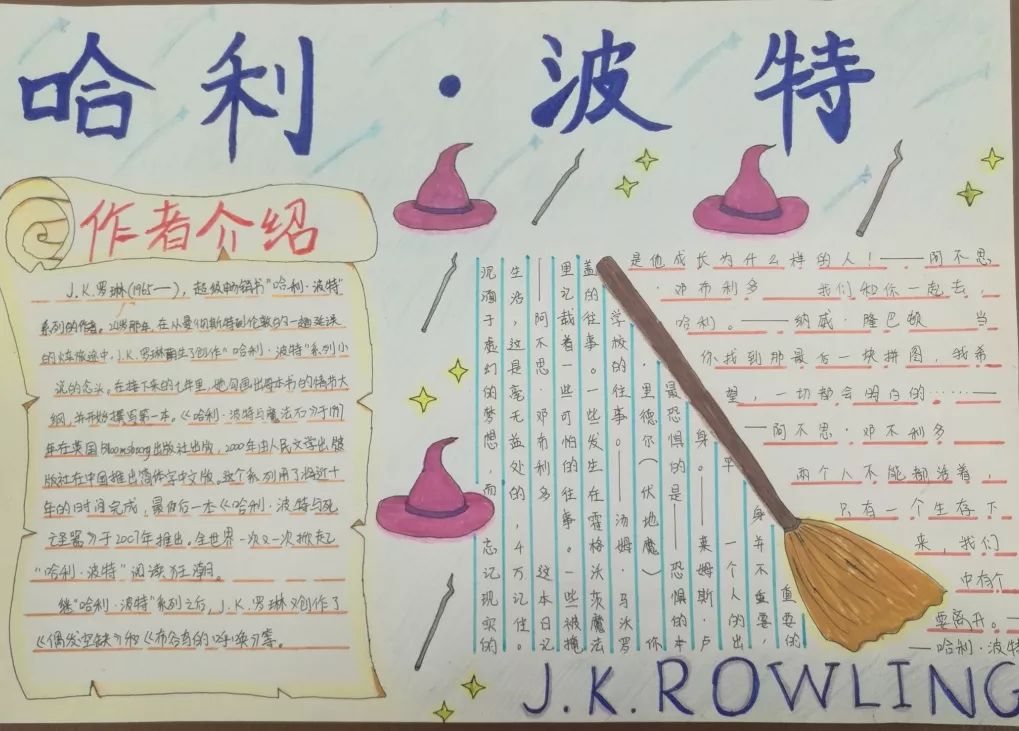 哈利·波特
作者介绍
J.K.罗琳(1965—),超级畅销书“哈利·波特”
系列的作者。24岁那年,在从曼彻斯特到伦敦的一趟延误
的火车旅途中,J.K.罗琳萌生了创作“哈利·波特”系列小
说的念头。在接下来的七年里,她勾画出每本书的情节大
纲,并开始撰写第一本。《哈利·波特与魔法石》于1997
年在英国Bloomsbury出版社出版,2000年由人民文学出版
版社在中国推出简体字中文版。这个系列用了将近十
年的时间完成,最后一本《哈利·波特与死
亡圣器》于2007年推出。全世界一次又一次掀起
“哈利·波特”阅读狂潮。
继“哈利·波特”系列之后,J.K.罗琳又创作了
《偶发空缺》和《布谷鸟的呼唤》等。
沉湎于虚幻的梦想,而忘记现实的
生活,这是毫无益处的,千万记住。
——阿不思·邓布利多 这本日记
里记载着一些可怕的往事。一些被掩
盖的往事。一些发生在霍格沃茨魔法
学校的往事。——汤姆·马沃罗
·里德尔(伏地魔) 你
最恐惧的是——恐惧的本
身。——莱姆斯·卢
平 一个人的出
身并不重要,
重要的
是他成长为什么样的人!——阿不思
·邓布利多 我们和你一起去,
哈利。——纳威·隆巴顿 当
你找到那最后一块拼图,我希
望,一切都会明白的……—
—阿不思·邓不利多
两个人不能都活着,
只有一个生存下
来,我们
中有个
要离开。—
—哈利·波特
J.K.ROWLING